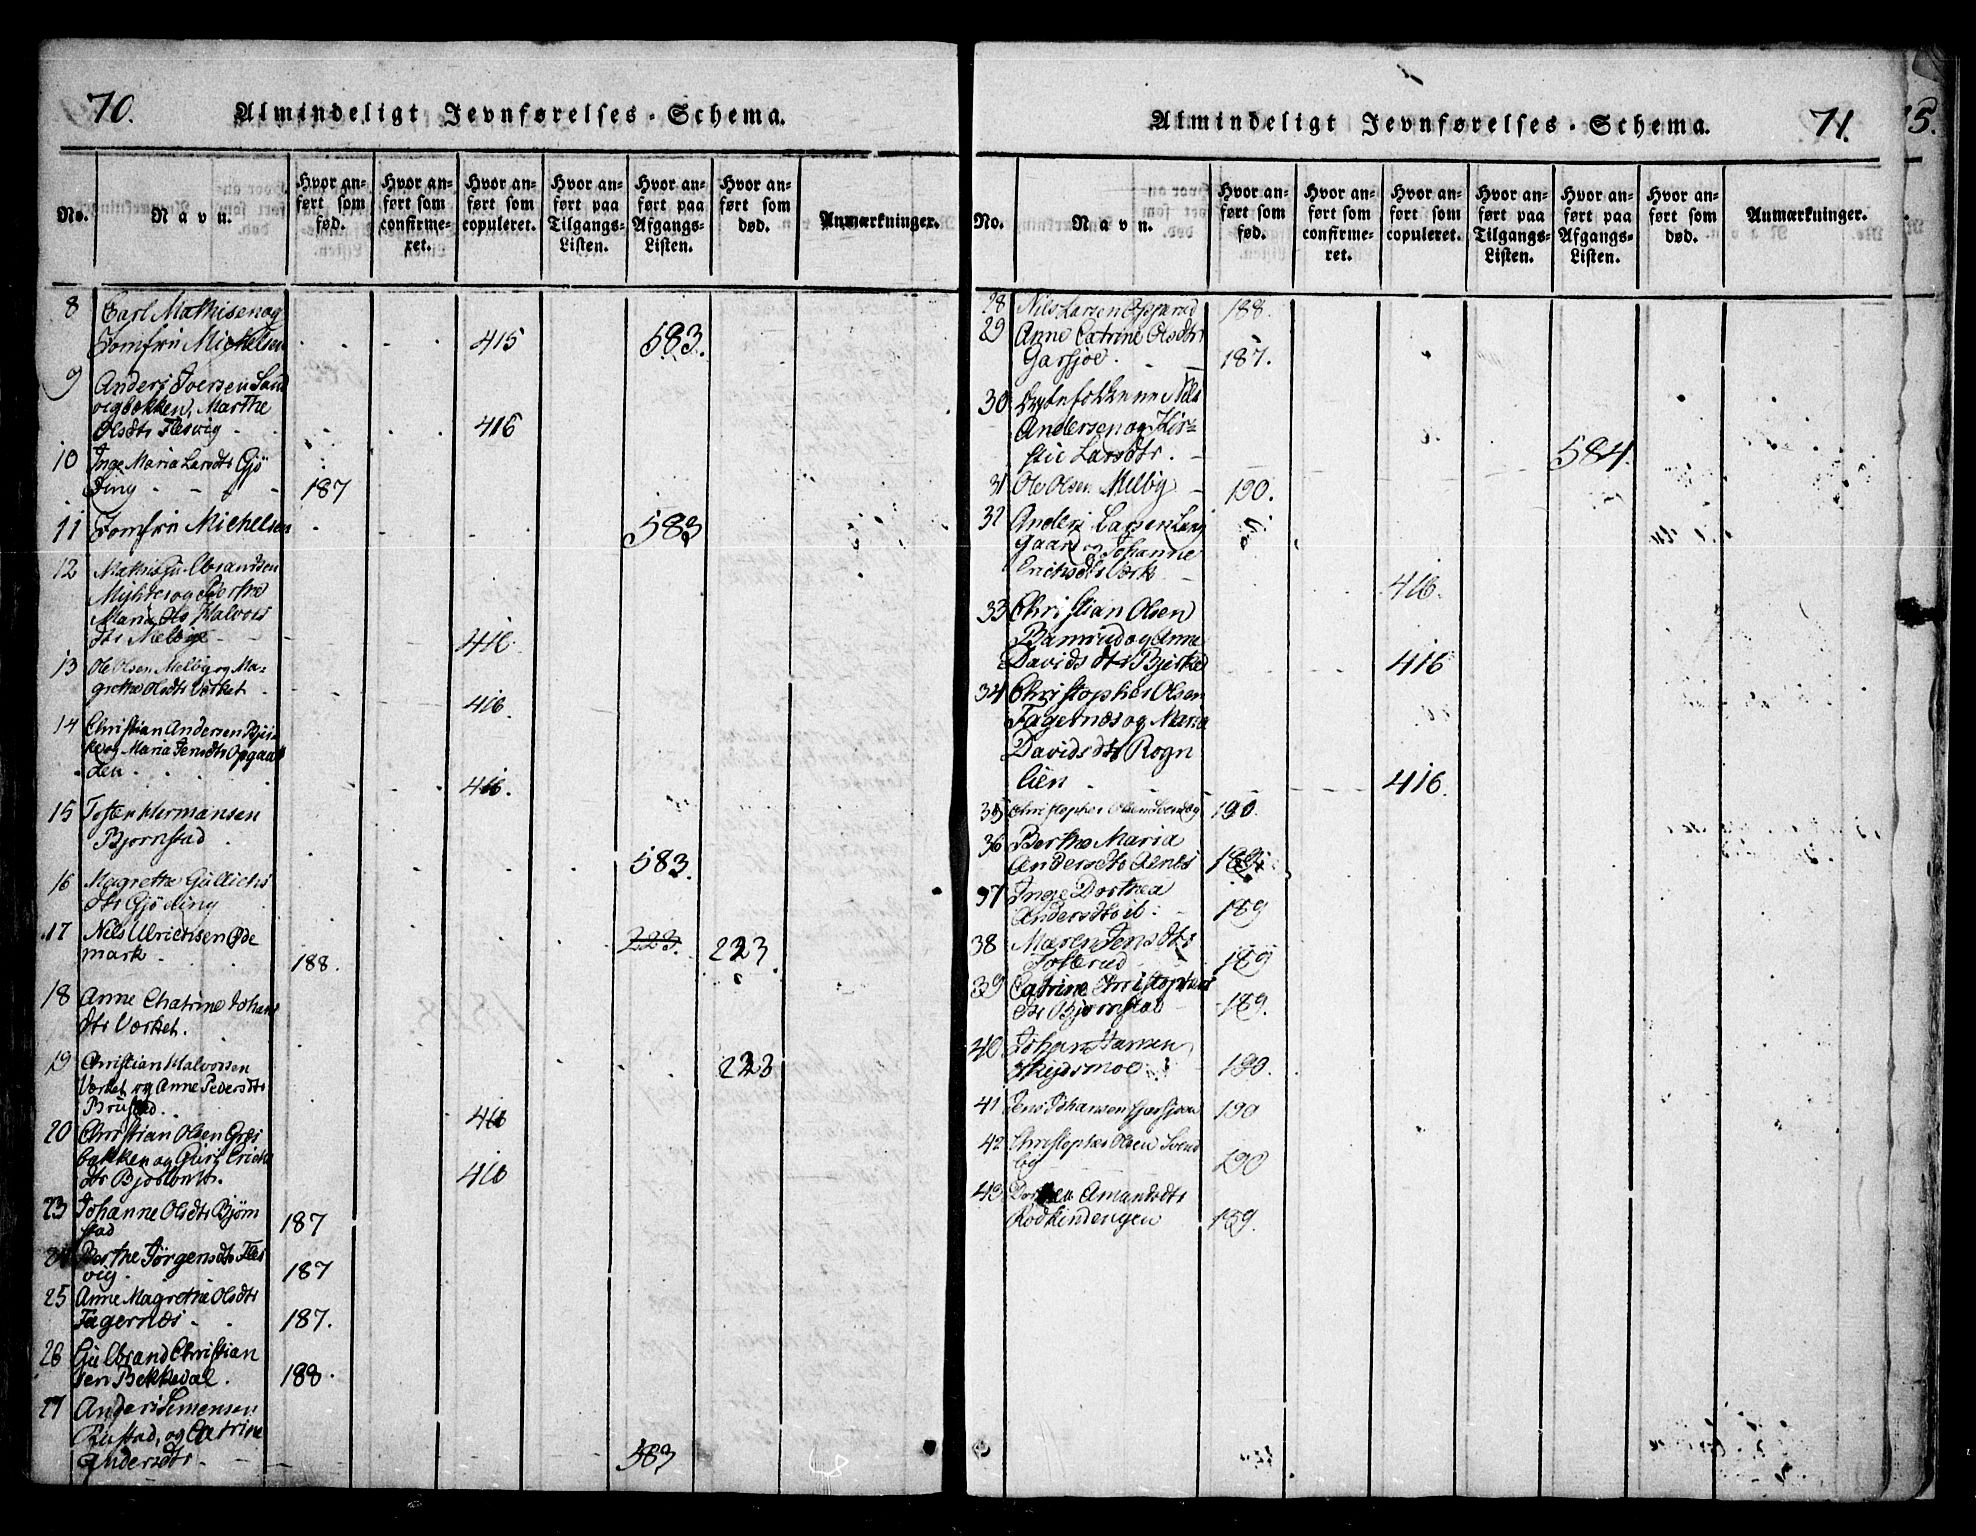 70.
Almindeligt Jevnførelses-Schema.
No.
Navn.
Hvor anført som fød.
Hvor anført som confirmeret.
Hvor anført som copuleret.
Hvor anført paa Tilgangs-Listen.
Hvor anført paa Afgangs-Listen.
Hvor anført som død.
Anmærkninger.
8 Carl Mathisen og
Jomfru Michelsen 415 583.
9 Anders Iversen Sand
vigbakken, Marthe
Olsdtr Flesvig 416
10 Inge Maria Larsdtr Gjö
ding 187
11 Jomfru Michelsen 583
12 Mathis Gulbrandsen
og Berthe
Maria Halvors
dtr Melbye 416.
13 Ole Olsen Melbig og Ma-
grethe Olsdtr Værket 416.
14 Christian Andersen Bjer-
ke og Maria Jensdtr Opgaar
den 416.
15 Toster Hermansen
Bjørnstad 583.
16 Magrethe Gullichs
dtr Gjöding
17 Nils Ulrichsen Øde
mark 188. 223. 223
18 Anne Chatrine Johans
dtr Værket.
19 Christian Halvorsen 223
Værket og Anne Pedersdtr
Brustad. 416
20 Christian Olsen
bakken og Guri Erichs
dtr 416
23 Johanne Olsdtr Bjørn
stad 187
24 Berthe Jørgensdtr Fles
vig. 187
25 Anne Magrethe Olsdtr
Fagernæs 187.
26 Gulbrand Christian
sen Bekkedal. 188.
27 Anders Simensen
Rustad, og Catrine
Andersdtr 583
Almindeligt Jevnførelses-Schema.
71.
5.
No.
Navn.
Hvor anført som fød.
Hvor anført som confirmeret.
Hvor anført som copuleret.
Hvor anført paa Tilgangs-Listen.
Hvor anført paa Afgangs-Listen.
Hvor anført som død.
Anmærkninger.
28 Nils Larsen Opperud 188.
29 Anne Catrine Olsdtr
Garsjøe 187.
30 Nils
Andersen og Kir-
stie Larsdtr. 584.
31 Ole Olsen Melbig 190.
32 Anders Larsen Lang
gaard og Johanne
Erichsdtr Værk 416.
33 Christian Olsen
og Anne
Davidsdtr Bjerke 416
34 Christopher Olsen
Fagernæs og Maria
Davidsdtr Rogn
lien 416.
35 Christopher Olsen Svendbg 190.
36 Berthe Maria
Andersdtr Aenes
37 Inge Dorthea
Andersdtr ib: 189
38 Maren Jensdtr
Tosterud 189
39 Catrine Christophers
dtr Bjørnstad 189.
40 Johan Hansen
Skydsmoe 190.
41 Jens Johansen Garsjøen 190
42 Christopher Olsen Svend
big 190
43 Amundsdtr
Rodkindengen 189.